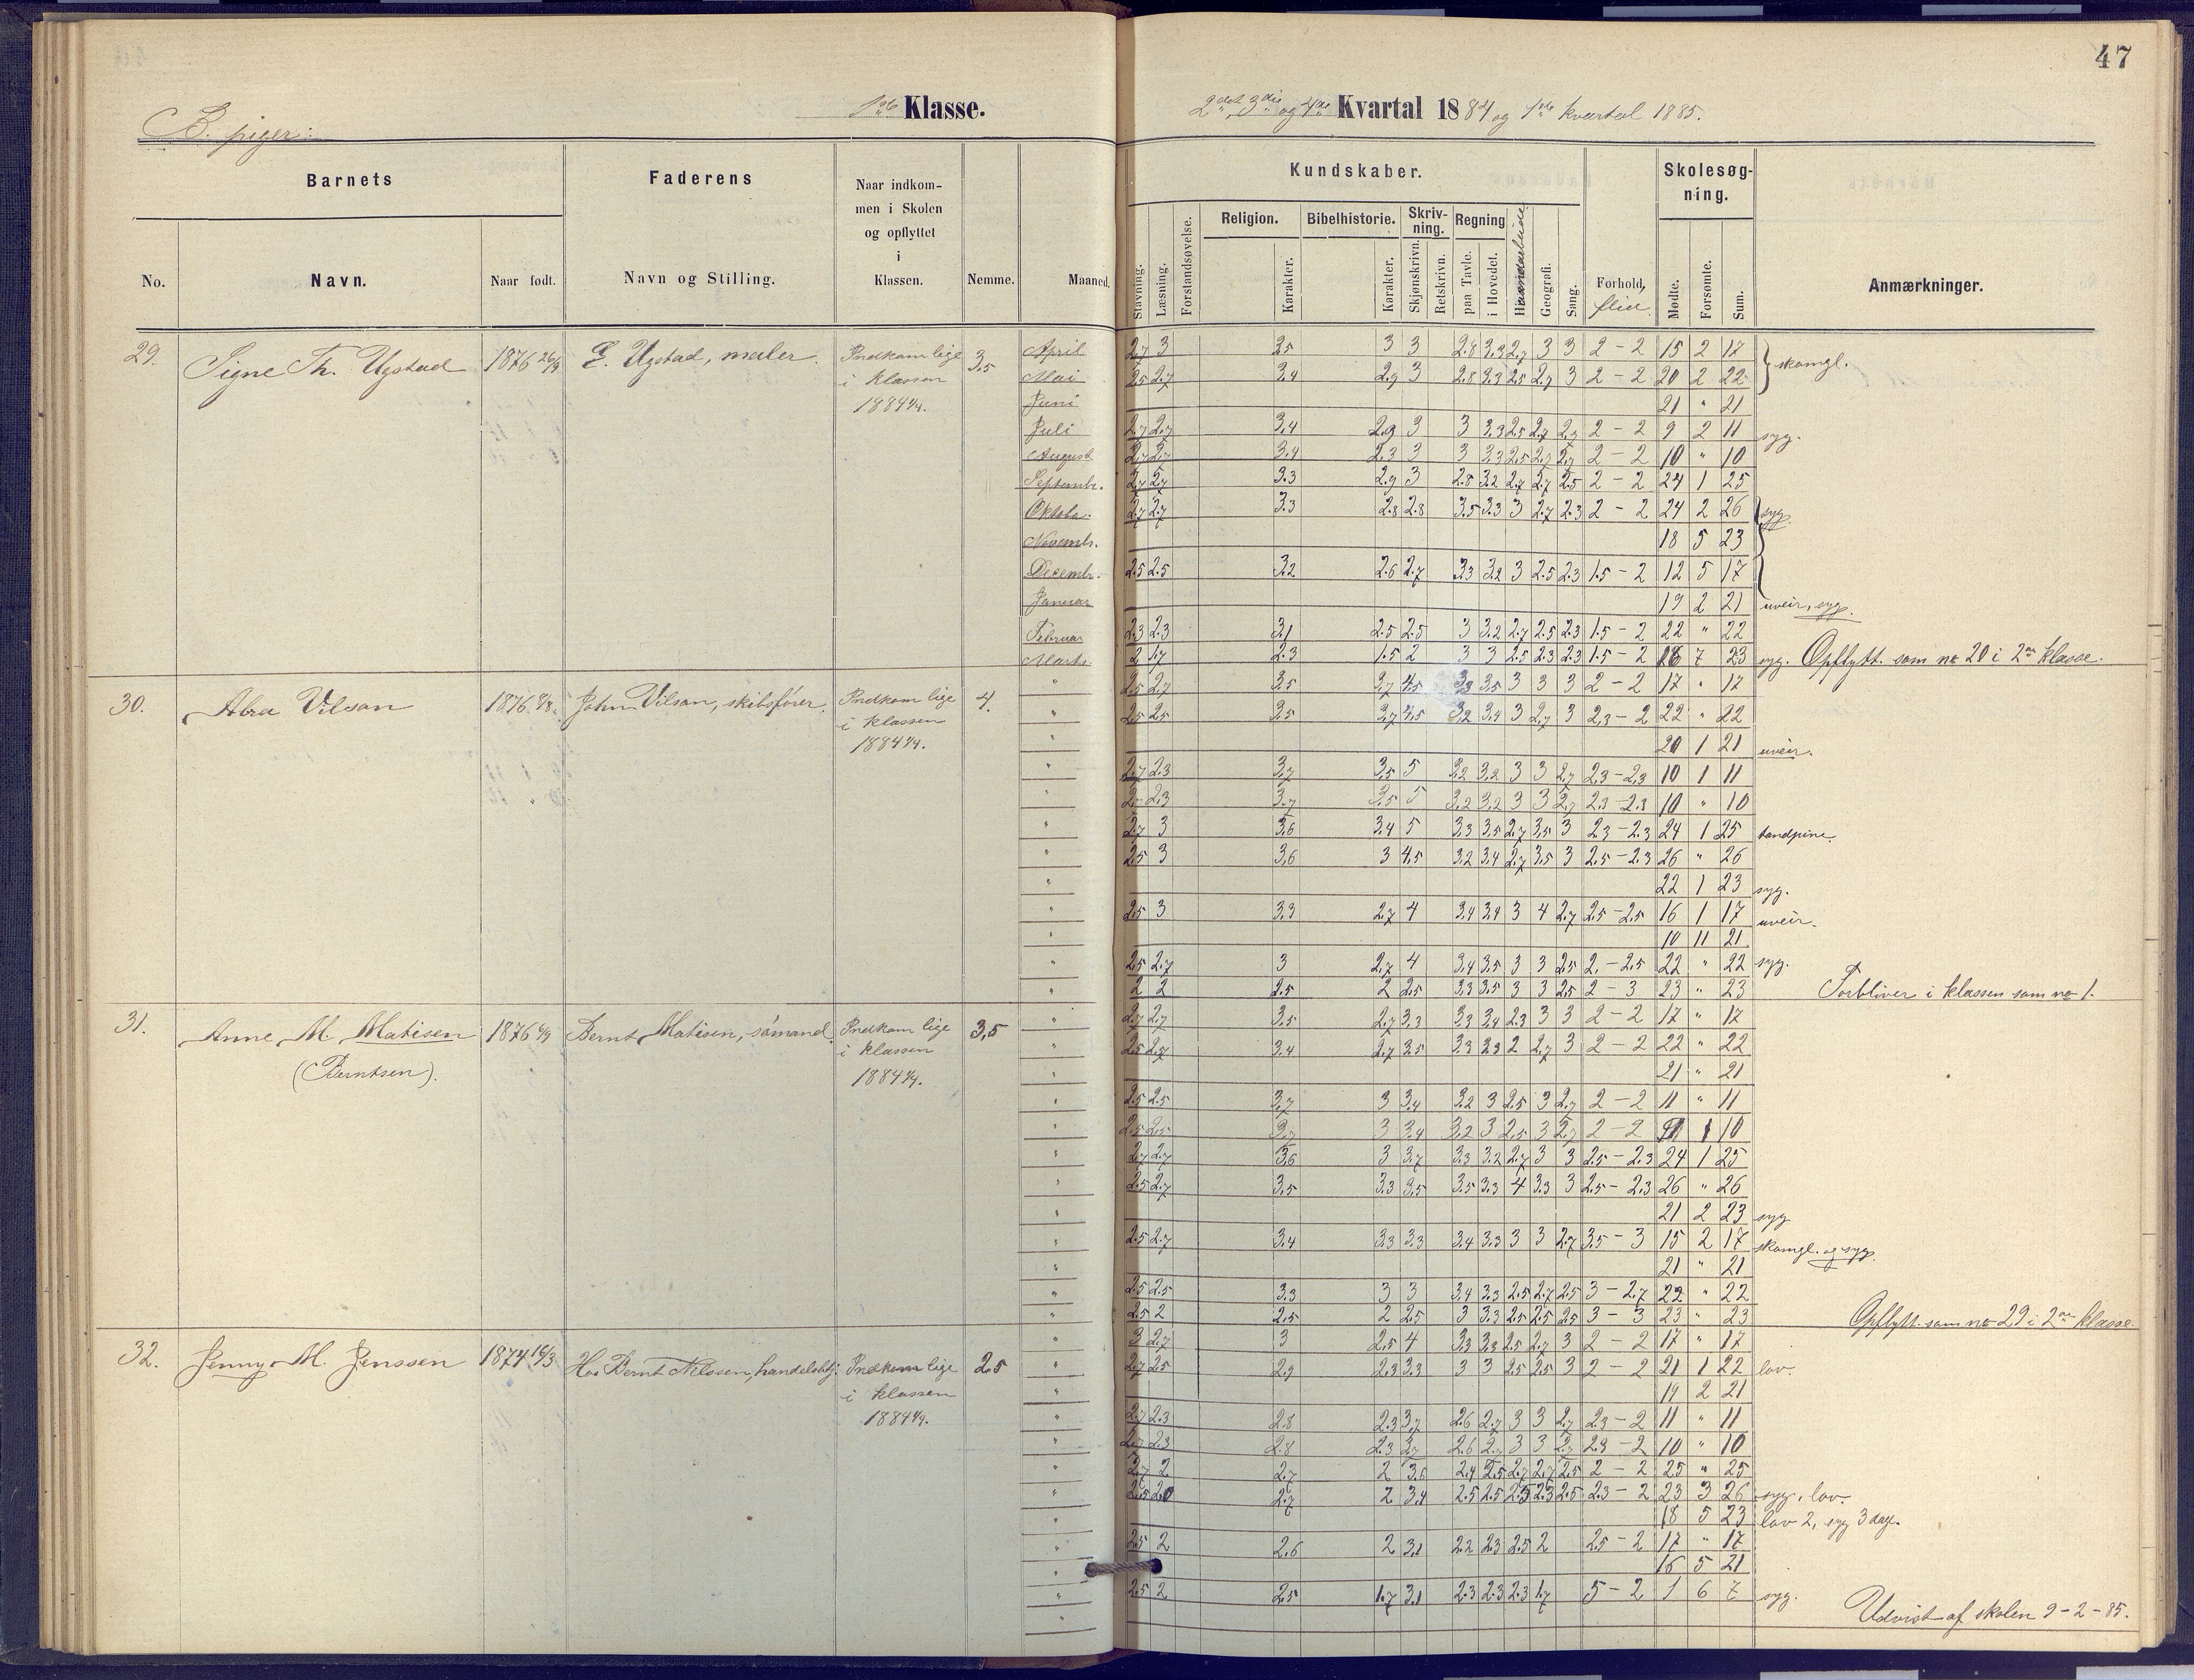 47
B. piger:
1ste Klasse.
2det, 3die og 4de Kvartal 1884 og 1ste kvartal 1885.
Barnets
Faderens
Naar indkommen i Skolen og opflyttet i Klassen.
Nemme.
Maaned.
Kundskaber.
Skolesøgning.
Anmærkninger.
No.
Navn.
Naar født.
Navn og Stilling.
Stavning.
Læsning.
Forstandsøvelse.
Religion.
Karakter.
Bibelhistorie.
Karakter.
Skrivning.
Skjønskrivn.
Retskrivn.
Regning
paa Tavle.
i Hovedet.
Haandarbeide.
Geografi.
Sang.
Forhold, flid
Mødte.
Forsømte.
Sum.
29. Signe Th. Ugstad 1876 E. Ugstad, maler. Indkom lige i klassen 1884 1/4. 3,5
April 2.7 3 3.5 3 3 2.8 3.3 2.7 3 3 2 - 2 15 2 17 skomgl.
Mai 2.5 2.7 3.4 2.9 3 2.8 3.3 2.5 2.7 3 2 - 2 20 2 22
Juni 21 " 21
Juli 2.7 2.7 3.4 2.9 3 3 3.3 2.5 2.7 2.7 2 - 2 9 2 11 syg.
August 2.7 2.7 3.4 2.3 3 3 3.3 2.5 2.7 2.7 2 - 2 10 " 10
Septembr. 2.7 2.7 3.3 2.9 3 2.8 3.2 2.7 2.7 2.5 2 - 2 24 1 25
Oktobr. 2.7 2.7 3.3 2.8 2.8 3.5 3.3 3 2.7 2.3 2 - 2 24 2 26 syg.
Novembr. 18 5 23
Decembr. 2.5 2.5 3.2 2.6 2.7 3.3 3.2 3 2.5 2.3 1.5 - 2 12 5 17
Januar 19 2 21 uveir, syg.
Februar 2.3 2.3 3.1 2.5 2.5 3 3.2 2.7 2.5 2.3 1.5 - 2 22 " 22
Marts. 2 1.7 2.3 1.5 2 3 3 2.5 2.3 2.3 1.5 - 2 16 7 23 syg. Opflytt. som no 20 i 2den klasse.
30. Abra Vilson 1876 John Vilson, skibsfører. Indkom lige i klassen 1884 1/4. 4.
" 2.5 2.7 3.5 3.7 4.5 3.3 3.5 3 3 3 2 - 2 17 " 17
" 2.5 2.5 3.5 3.7 4.5 3.2 3.4 3 2.7 3 2.3 - 2 22 " 22
" 20 1 21 uveir.
" 2.7 2.3 3.7 3.5 5 3.2 3.2 3 3 2.7 2.3 - 2.3 10 1 11
" 2.7 2.3 3.7 3.5 5 3.2 3.2 3 3 2.7 2.3 - 2.3 10 " 10
" 2.7 3 3.6 3.4 5 3.3 3.5 2.7 3.5 3 2.3 - 2.3 24 1 25 tandpine.
" 2.5 3 3.6 3 4.5 3.2 3.4 2.7 3.5 3 2.5 - 2.3 26 " 26
" 22 1 23 syg.
" 2.5 3 3.3 2.7 4 3.4 3.4 3 4 2.7 2.5 - 2.5 16 1 17 uveir.
" 10 11 21
" 2.5 2.7 3 2.7 4 3.4 3.5 3 3 2.5 2 - 2.5 22 " 22 syg.
" 2 2 2.5 2 2.5 3.3 3.5 3 3 2.5 2 - 3 23 " 23 Forbliver i klassen som no 1.
31. Anne M. Matisen (Berntsen). 1876 Bernt Matisen, sømand. Indkom lige i klassen 1884 1/4. 3,5
" 2.7 2.7 3.5 2.7 3.3 3.3 3.4 2.3 3 3 2 - 2 17 " 17
" 2.5 2.7 3.4 2.7 3.5 3.3 3.3 2 2.7 3 2 - 2 22 " 22
" 21 " 21
" 2.5 2.5 3.7 3 3.4 3.2 3 2.5 3 2.7 2 - 2 11 " 11
" 2.5 2.5 3.7 3 3.4 3.2 3 2.5 3 2.7 2 - 2 1 10
" 2.7 2.7 3.6 3 3.7 3.3 3.2 2.7 3 3 2.5 - 2.3 24 1 25
" 2.5 2.7 3.5 3.3 3.5 3.5 3.3 4 3.3 3 2.5 - 2.3 26 " 26
" 21 2 23 syg
" 2.5 2.7 3.4 3.3 3.3 3.4 3.3 3 3 2.7 3.5 - 3 15 2 17 skomgl. og syg.
" 21 " 21
" 2.5 2.5 3.3 3 3 3.4 3.3 2.5 2.7 2.5 3 - 2.7 22 " 22
" 2.5 2 2.5 2 2.5 3 3.3 2.5 2.5 2.5 3 - 3 23 " 23 Opflytt. som no 29 i 2den klasse.
32. Jenny M. Jenssen 1874 16/3 Hos Bernt Nilssen, handelsbtj. Indkom lige i klassen 1884 1/4. 2,5
" 3 2.7 3 2.5 4 3.3 3.3 2.5 2.7 3 2 - 2 17 " 17
" 2.7 2.5 2.9 2.3 3.3 3 3 2.5 2.5 3 2 - 2 21 1 22 lov.
" 19 2 21
" 2.7 2.3 2.8 2.3 3.7 2.6 2.7 3 3 2.7 2.3 - 2 11 " 11
" 2.7 2.3 2.8 2.3 3.7 2.6 2.7 3 3 2.7 2.3 - 2 10 " 10
" 2.7 2 2.7 2 3.6 2.4 2.5 2.7 2.7 2.5 2 - 2 25 " 25
" 2.5 2.0 2.7 2 3.4 2.5 2.5 2.5 2.3 2.5 2.3 - 2 23 3 26 syg, lov.
" 18 5 23 lov 2, syg 3 dage.
" 2.5 2 2.6 2 3.1 2.2 2.3 2.5 2 2.5 - 2 17 " 17
" 16 5 21
" 2.5 2 2.5 1.7 3.1 2.3 2.3 2.3 1.7 5 - 2 1 6 7 syg.
" Udvist af skolen 9-2-85.